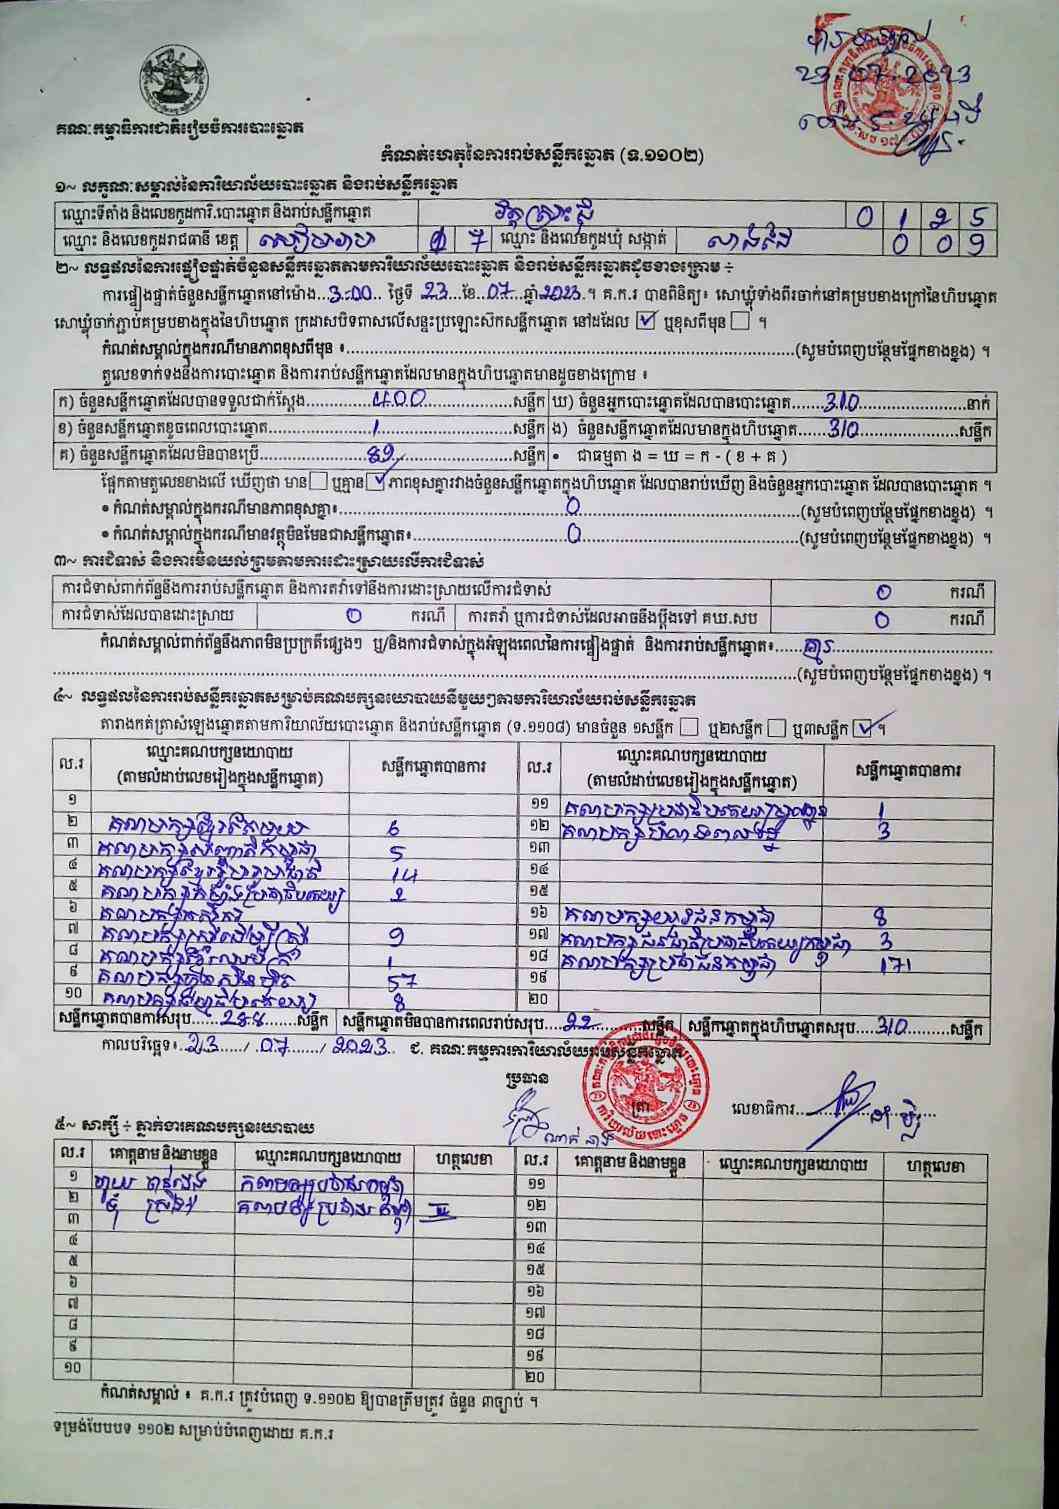 23.07.2023
គណៈកម្មាធិការជាតិរៀបចំការបោះឆ្នោត
កំណត់ហេតុនៃការរាប់សន្លឹកឆ្នោត (ទ.១១០២)
១~ លក្ខណៈសម្គាល់នៃការិយាល័យបោះឆ្នោត និងរាប់សន្លឹកឆ្នោត
ឈ្មោះទីតាំង និងលេខកូដការិ.បោះឆ្នោត និងរាប់សន្លឹកឆ្នោត 0 1 2 5
ឈ្មោះ និងលេខកូដរាជធានី ខេត្ត សៀមរាប 1 7 ឈ្មោះ និងលេខកូដឃុំ សង្កាត់ 0 0 9
២~ លទ្ធផលនៃការផ្ទៀងផ្ទាត់ចំនួនសន្លឹកឆ្នោតតាមការិយាល័យបោះឆ្នោត និងរាប់សន្លឹកឆ្នោតដូចខាងក្រោម ៖
ការផ្ទៀងផ្ទាត់ចំនួនសន្លឹកឆ្នោតនៅម៉ោង...3:00... ថ្ងៃទី 23 ...ខែ..07...ឆ្នាំ2023.។ គ.ក.រ បានពិនិត្យ៖ សោឃ្លុំទាំងពីរចាក់នៅគម្របខាងក្រៅនៃហិបឆ្នោត
សោឃ្លុំចាក់ភ្ជាប់គម្របខាងក្នុងនៃហិបឆ្នោត ក្រដាសបិទពាសលើសន្ទះប្រឡោះស៊កសន្លឹកឆ្នោត នៅដដែល ☑ ឬខុសពីមុន ☐ ។
កំណត់សម្គាល់ក្នុងករណីមានភាពខុសពីមុន ៖...(សូមបំពេញបន្ថែមផ្នែកខាងខ្នង) ។
តួលេខទាក់ទងនឹងការបោះឆ្នោត និងការរាប់សន្លឹកឆ្នោតដែលមានក្នុងហិបឆ្នោតមានដូចខាងក្រោម ៖
ក) ចំនួនសន្លឹកឆ្នោតដែលបានទទួលជាក់ស្តែង...400...សន្លឹក ឃ) ចំនួនអ្នកបោះឆ្នោតដែលបានបោះឆ្នោត...310...នាក់
ខ) ចំនួនសន្លឹកឆ្នោតខូចពេលបោះឆ្នោត...1...សន្លឹក ង) ចំនួនសន្លឹកឆ្នោតដែលមានក្នុងហិបឆ្នោត...310...សន្លឹក
គ) ចំនួនសន្លឹកឆ្នោតដែលមិនបានប្រើ...89...សន្លឹក • ជាធម្មតា ង = ឃ = ក - ( ខ + គ )
ផ្អែកតាមតួលេខខាងលើ ឃើញថា មាន ☐ ឬគ្មាន ☑ ភាពខុសគ្នារវាងចំនួនសន្លឹកឆ្នោតក្នុងហិបឆ្នោត ដែលបានរាប់ឃើញ និងចំនួនអ្នកបោះឆ្នោត ដែលបានបោះឆ្នោត ។
• កំណត់សម្គាល់ក្នុងករណីមានភាពខុសគ្នា៖...0...(សូមបំពេញបន្ថែមផ្នែកខាងខ្នង) ។
• កំណត់សម្គាល់ក្នុងករណីមានវត្ថុមិនមែនជាសន្លឹកឆ្នោត៖...0...(សូមបំពេញបន្ថែមផ្នែកខាងខ្នង) ។
៣~ ការជំទាស់ និងការមិនយល់ព្រមតាមការដោះស្រាយលើការជំទាស់
ការជំទាស់ពាក់ព័ន្ធនឹងការរាប់សន្លឹកឆ្នោត និងការតវ៉ាទៅនឹងការដោះស្រាយលើការជំទាស់ 0 ករណី
ការជំទាស់ដែលបានដោះស្រាយ 0 ករណី ការតវ៉ា ឬការជំទាស់ដែលអាចនឹងប្តឹងទៅ គឃ.សប 0 ករណី
កំណត់សម្គាល់ពាក់ព័ន្ធនឹងភាពមិនប្រក្រតីផ្សេងៗ ឬ/និងការជំទាស់ក្នុងអំឡុងពេលនៃការផ្ទៀងផ្ទាត់ និងការរាប់សន្លឹកឆ្នោត៖...គ្មាន...
...(សូមបំពេញបន្ថែមផ្នែកខាងខ្នង) ។
៤~ លទ្ធផលនៃការរាប់សន្លឹកឆ្នោតសម្រាប់គណបក្សនយោបាយនីមួយៗតាមការិយាល័យរាប់សន្លឹកឆ្នោត
តារាងកត់ត្រាសំឡេងឆ្នោតតាមការិយាល័យបោះឆ្នោត និងរាប់សន្លឹកឆ្នោត (ទ.១១០៨) មានចំនួន ១សន្លឹក ☐ ឬ២សន្លឹក ☐ ឬ៣សន្លឹក ☑ ។
ល.រ ឈ្មោះគណបក្សនយោបាយ (តាមលំដាប់លេខរៀងក្នុងសន្លឹកឆ្នោត) សន្លឹកឆ្នោតបានការ ល.រ ឈ្មោះគណបក្សនយោបាយ (តាមលំដាប់លេខរៀងក្នុងសន្លឹកឆ្នោត) សន្លឹកឆ្នោតបានការ
១ ១១ 1
២ 6 ១២ 3
៣ គណបក្សសញ្ជាតិកម្ពុជា 5 ១៣
៤ គណបក្សខ្មែររួបរួមជាតិ 14 ១៤
៥ 2 ១៥
៦ គណបក្សកសិករ ១៦ គណបក្សយុវជនកម្ពុជា 8
៧ គណបក្សស្រ្តីដើម្បីស្រ្តី 9 ១៧ គណបក្សជនជាតិប្រជាធិបតេយ្យកម្ពុជា 3
៨ 1 ១៨ គណបក្សប្រជាជនកម្ពុជា 171
៩ គណបក្សហ្វ៊ុនស៊ិនប៉ិច 57 ១៩
១០ 8 ២០
សន្លឹកឆ្នោតបានការសរុប...288...សន្លឹក សន្លឹកឆ្នោតមិនបានការពេលរាប់សរុប...22...សន្លឹក សន្លឹកឆ្នោតក្នុងហិបឆ្នោតសរុប...310...សន្លឹក
កាលបរិច្ឆេទ៖..23...../ 07....../ 2023.. ជ. គណៈកម្មការការិយាល័យរាប់សន្លឹកឆ្នោត
ប្រធាន
ត្រា
លេខាធិការ
៥~ សាក្សី ៖ ភ្នាក់ងារគណបក្សនយោបាយ
ល.រ គោត្តនាម និងនាមខ្លួន ឈ្មោះគណបក្សនយោបាយ ហត្ថលេខា ល.រ គោត្តនាម និងនាមខ្លួន ឈ្មោះគណបក្សនយោបាយ ហត្ថលេខា
១ គណបក្សប្រជាជនកម្ពុជា ១១
២ គណបក្សប្រជាជនកម្ពុជា ១២
៣ ១៣
៤ ១៤
៥ ១៥
៦ ១៦
៧ ១៧
៨ ១៨
៩ ១៩
១០ ២០
កំណត់សម្គាល់ ៖ គ.ក.រ ត្រូវបំពេញ ទ.១១០២ ឱ្យបានត្រឹមត្រូវ ចំនួន ៣ច្បាប់ ។
ទម្រង់បែបបទ ១១០២ សម្រាប់បំពេញដោយ គ.ក.រ